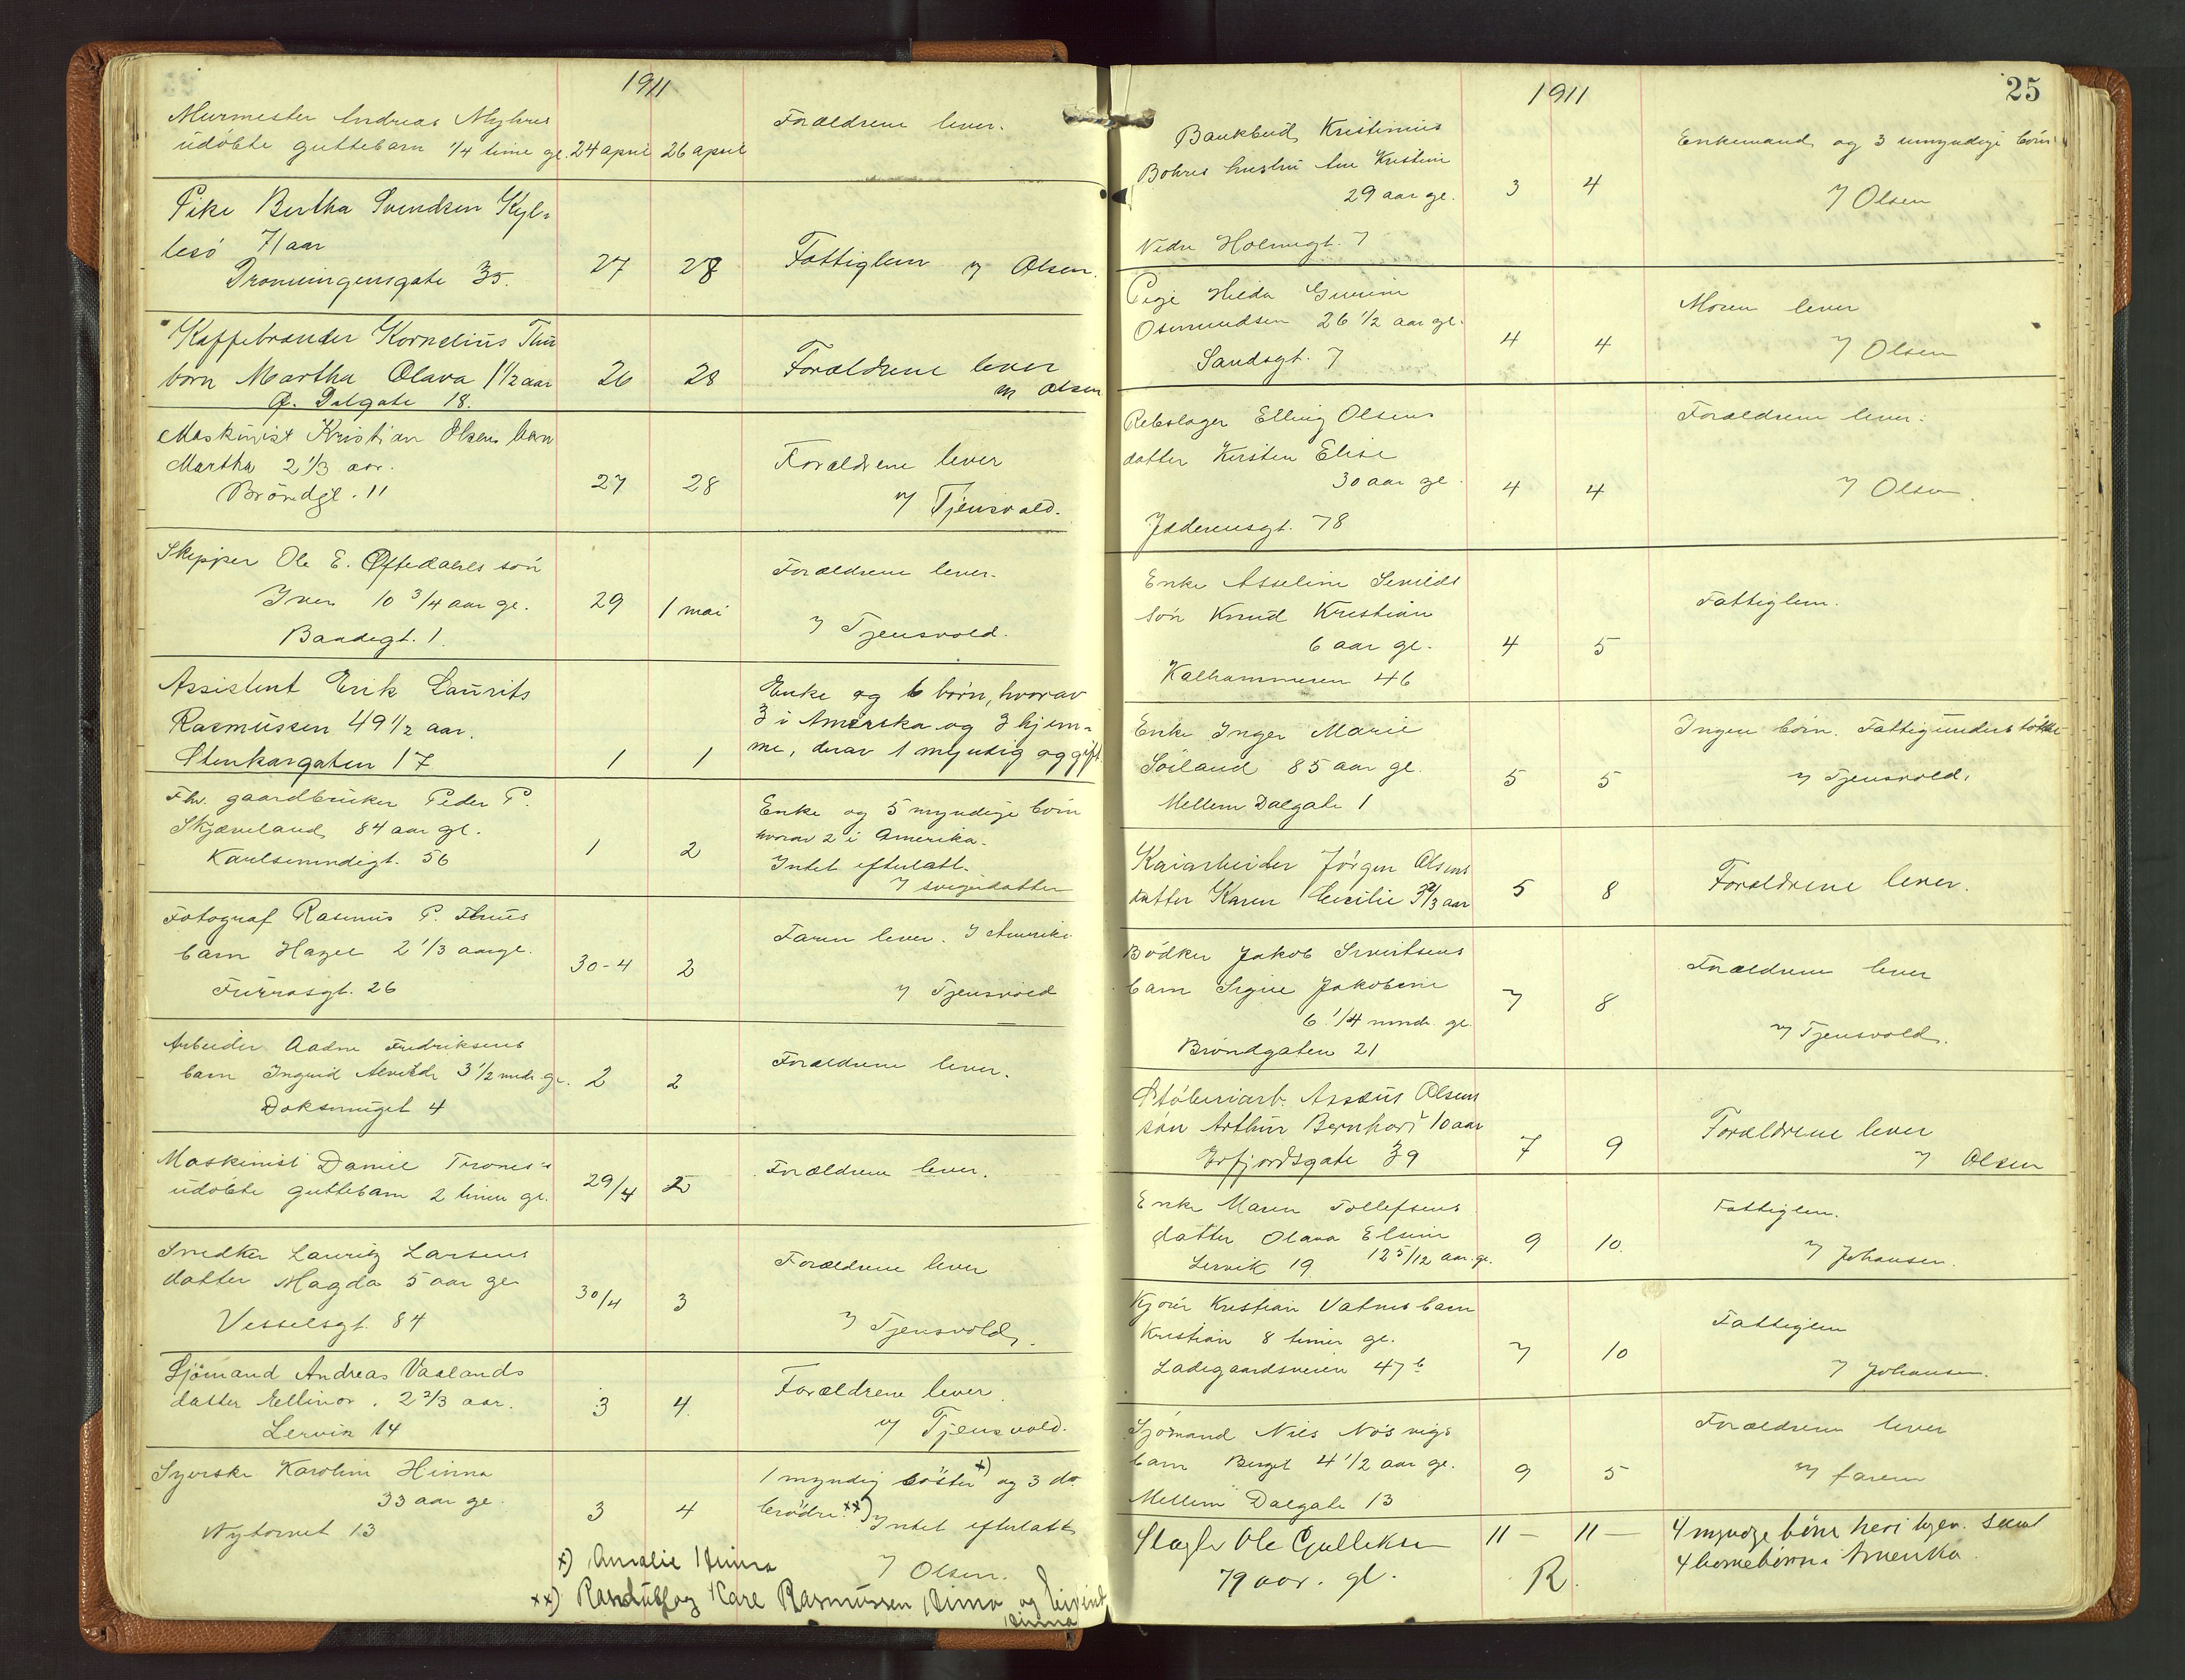 1911
Murmester Andreas Myhres
udöbte guttebarn 1/4 time gl. 24 april 26 april
Forældrene lever.
Pike Bertha Svendsen Kyl-
lesö 71 aar
Dronningensgate 35.
27 28
Fattiglem v/ Olsen.
Kaffebrænder Kornelius
barn Martha Olava 1 1/2 aar
Ø. Dalgate 18.
26 28
Forældrene lever
v/ Olsen
Maskinist Kristian Olsens barn
Martha 2 1/3 aar.
Bröndgt. 11
27 28
Forældrene lever
v/ Tjensvold.
Skipper Ole E. Oftedahls sön
Iver 10 3/4 aar gl.
Bandegt. 1.
29 1 mai
Forældrene lever.
v/ Tjensvold.
Assistent Erik Laurits
Rasmussen 49 1/2 aar.
Stenkargaten 17
1 1
Enke og 6 börn, hvorav
3 i Amerika og 3 hjem-
me, derav 1 myndig og gift
Fhv. gaardbruker Peder P.
Skjæveland 84 aar gl.
Karlsminnigt. 56
1 2
Enke og 5 myndige börn
hvorav 2 i Amerika.
Intet efterlatt.
v/ svigerdatter
Fotograf Rasmus P. Thus
barn Hazel 2 1/3 aar gl.
Furrasgt. 26
30-4 2
Faren lever. I Amerika
v/ Tjensvold
Arbeider Aadne Fredriksens
barn Ingrid Alvilde 3 1/2 mdr. gl.
Doksmuget 4
2 2
Forældrene lever.
Maskinist Daniel Trones's
udöbte guttebarn 2 timer gl.
29/4 2
Forældrene lever.
Snedker Lauritz Larsens
datter Magda 5 aar gl
Vesselsgt. 84
30/4 3
Forældrene lever
v/ Tjensvold.
Sjömand Andreas Vaalands
datter Ellinor. 2 2/3 aar.
Lervik 14
3 4.
Forældrene lever.
v/ Tjensvold.
Syerske Karoline Hinna
33 aar gl.
Nytorvet 13
3 4
1 myndig söster x) og 3 do
brödre. xx) Intet efterlatt
v/ Olsen.
x) Amalie Hinna
xx) Karl Rasmussen Hinna og Eivind
Hinna
25
1911
Bankbud Kristinius
Bohres hustru Ane Kristine
29 aar gl.
Nedre Holmegt. 7
3 4
Enkemand og 3 umyndige börn
v/ Olsen
Pige Hilda Gurine
Osmundsen 26 1/2 aar gl.
Sandsgt. 7
4 4
Moren lever
v/ Olsen
Rebslager Elling Olsens
datter Kirsten Elise
30 aar gl.
Jæderensgt. 78
4 4
Forældrene lever.
v/ Olsen.
Enke Asseline
sön Knud Kristian
6 aar gl.
Kalhammeren 46
4 5
Fattiglem.
Enke Inger Marie
Söiland 85 aar gl.
Mellem Dalgate 1
5 5
Ingen börn. Fattigunderstöttet
v/ Tjensvold.
Kaiarbeider Jörgen Olsens
datter Karen Cecilie 3 2/3 aar
5 8
Forældrene lever.
Bödker Jakob Sivertsens
barn Signe Jakobine
6 1/4 mndr. gl.
Bröndgaten 21
7 8
Forældrene lever
v/ Tjensvold.
Stöberiarb. Asseus Olsens
sön Arthur Bernhard 10 aar
Erfjordsgate 39
7 9
Forældrene lever
v/ Olsen
Enke Maren Tollefsens
datter Olava Elsine
Lervik 19 12 5/12 aar. gl.
9 10.
Fattiglem.
v/ Johansen.
Kjörer Kristian Vatnes barn
Kristian 8 timer gl.
Ladegaardsveien 47 b
7 10
Fattiglem
v/ Johansen.
Sjömand Nils Nösvigs
barn Berget 4 1/2 aar gl.
Mellem Dalgate 13
9 5
Forældrene lever
v/ faren
Slagter Ole Gulleksen
79 aar. gl.
11 — 11 —
R.
4 myndge börn her i byen. samt
4 barnebörn i Amerika.